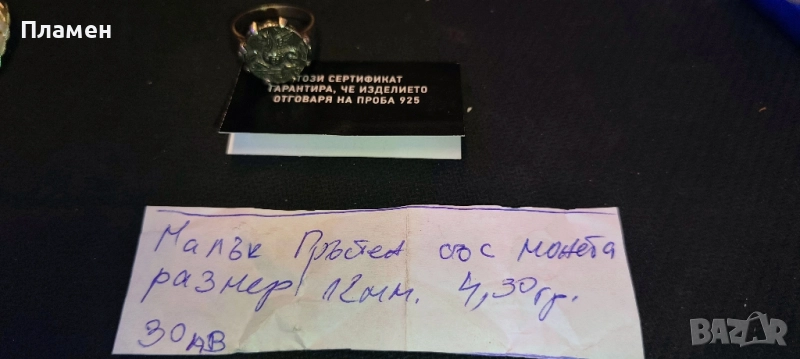 Пламен
ТОЗИ СЕРТИФИКАТ
ГАРАНТИРА, ЧЕ ИЗДЕЛИЕТО
ОТГОВАРЯ НА ПРОБА 925
Малък Пръстен със монета
размер 12мм. 4,30гр.
30лв
BAZAR